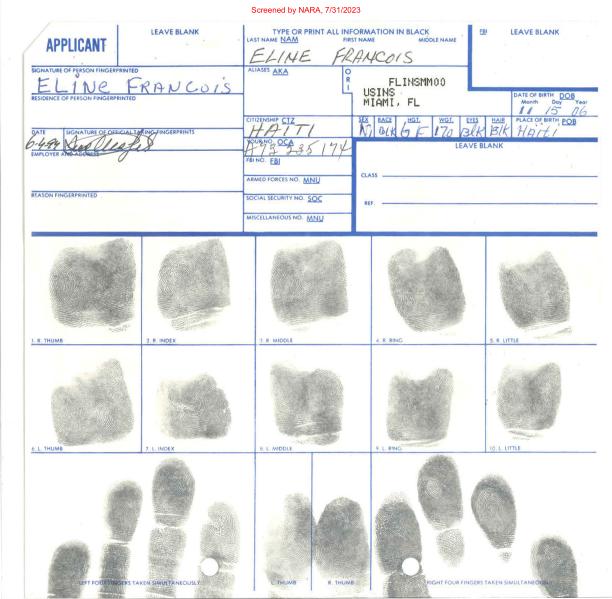 Screened by NARA, 7/31/2023
APPLICANT
LEAVE BLANK
TYPE OR PRINT ALL INFORMATION IN BLACK
LAST NAME NAM FIRST NAME MIDDLE NAME
FBI LEAVE BLANK
ELINE FRANCOIS
SIGNATURE OF PERSON FINGERPRINTED
ELINE FRANCOIS
ALIASES AKA
O
R
I
FLINSMM00
USINS
MIAMI, FL
RESIDENCE OF PERSON FINGERPRINTED
DATE OF BIRTH DOB
Month Day Year
11 15 06
CITIZENSHIP CTZ
HAITI
SEX RACE HGT. WGT. EYES HAIR PLACE OF BIRTH POB
BLK 170 BLK BLK HAITI
DATE SIGNATURE OF OFFICIAL TAKING FINGERPRINTS
YOUR NO. OCA
A73 235 174
LEAVE BLANK
EMPLOYER AND ADDRESS
FBI NO. FBI
CLASS
ARMED FORCES NO. MNU
REASON FINGERPRINTED
SOCIAL SECURITY NO. SOC
REF.
MISCELLANEOUS NO. MNU
1. R. THUMB 2. R. INDEX 3. R. MIDDLE 4. R. RING 5. R. LITTLE
6. L. THUMB 7. L. INDEX 8. L. MIDDLE 9. L. RING 10. L. LITTLE
LEFT FOUR FINGERS TAKEN SIMULTANEOUSLY L. THUMB R. THUMB RIGHT FOUR FINGERS TAKEN SIMULTANEOUSLY